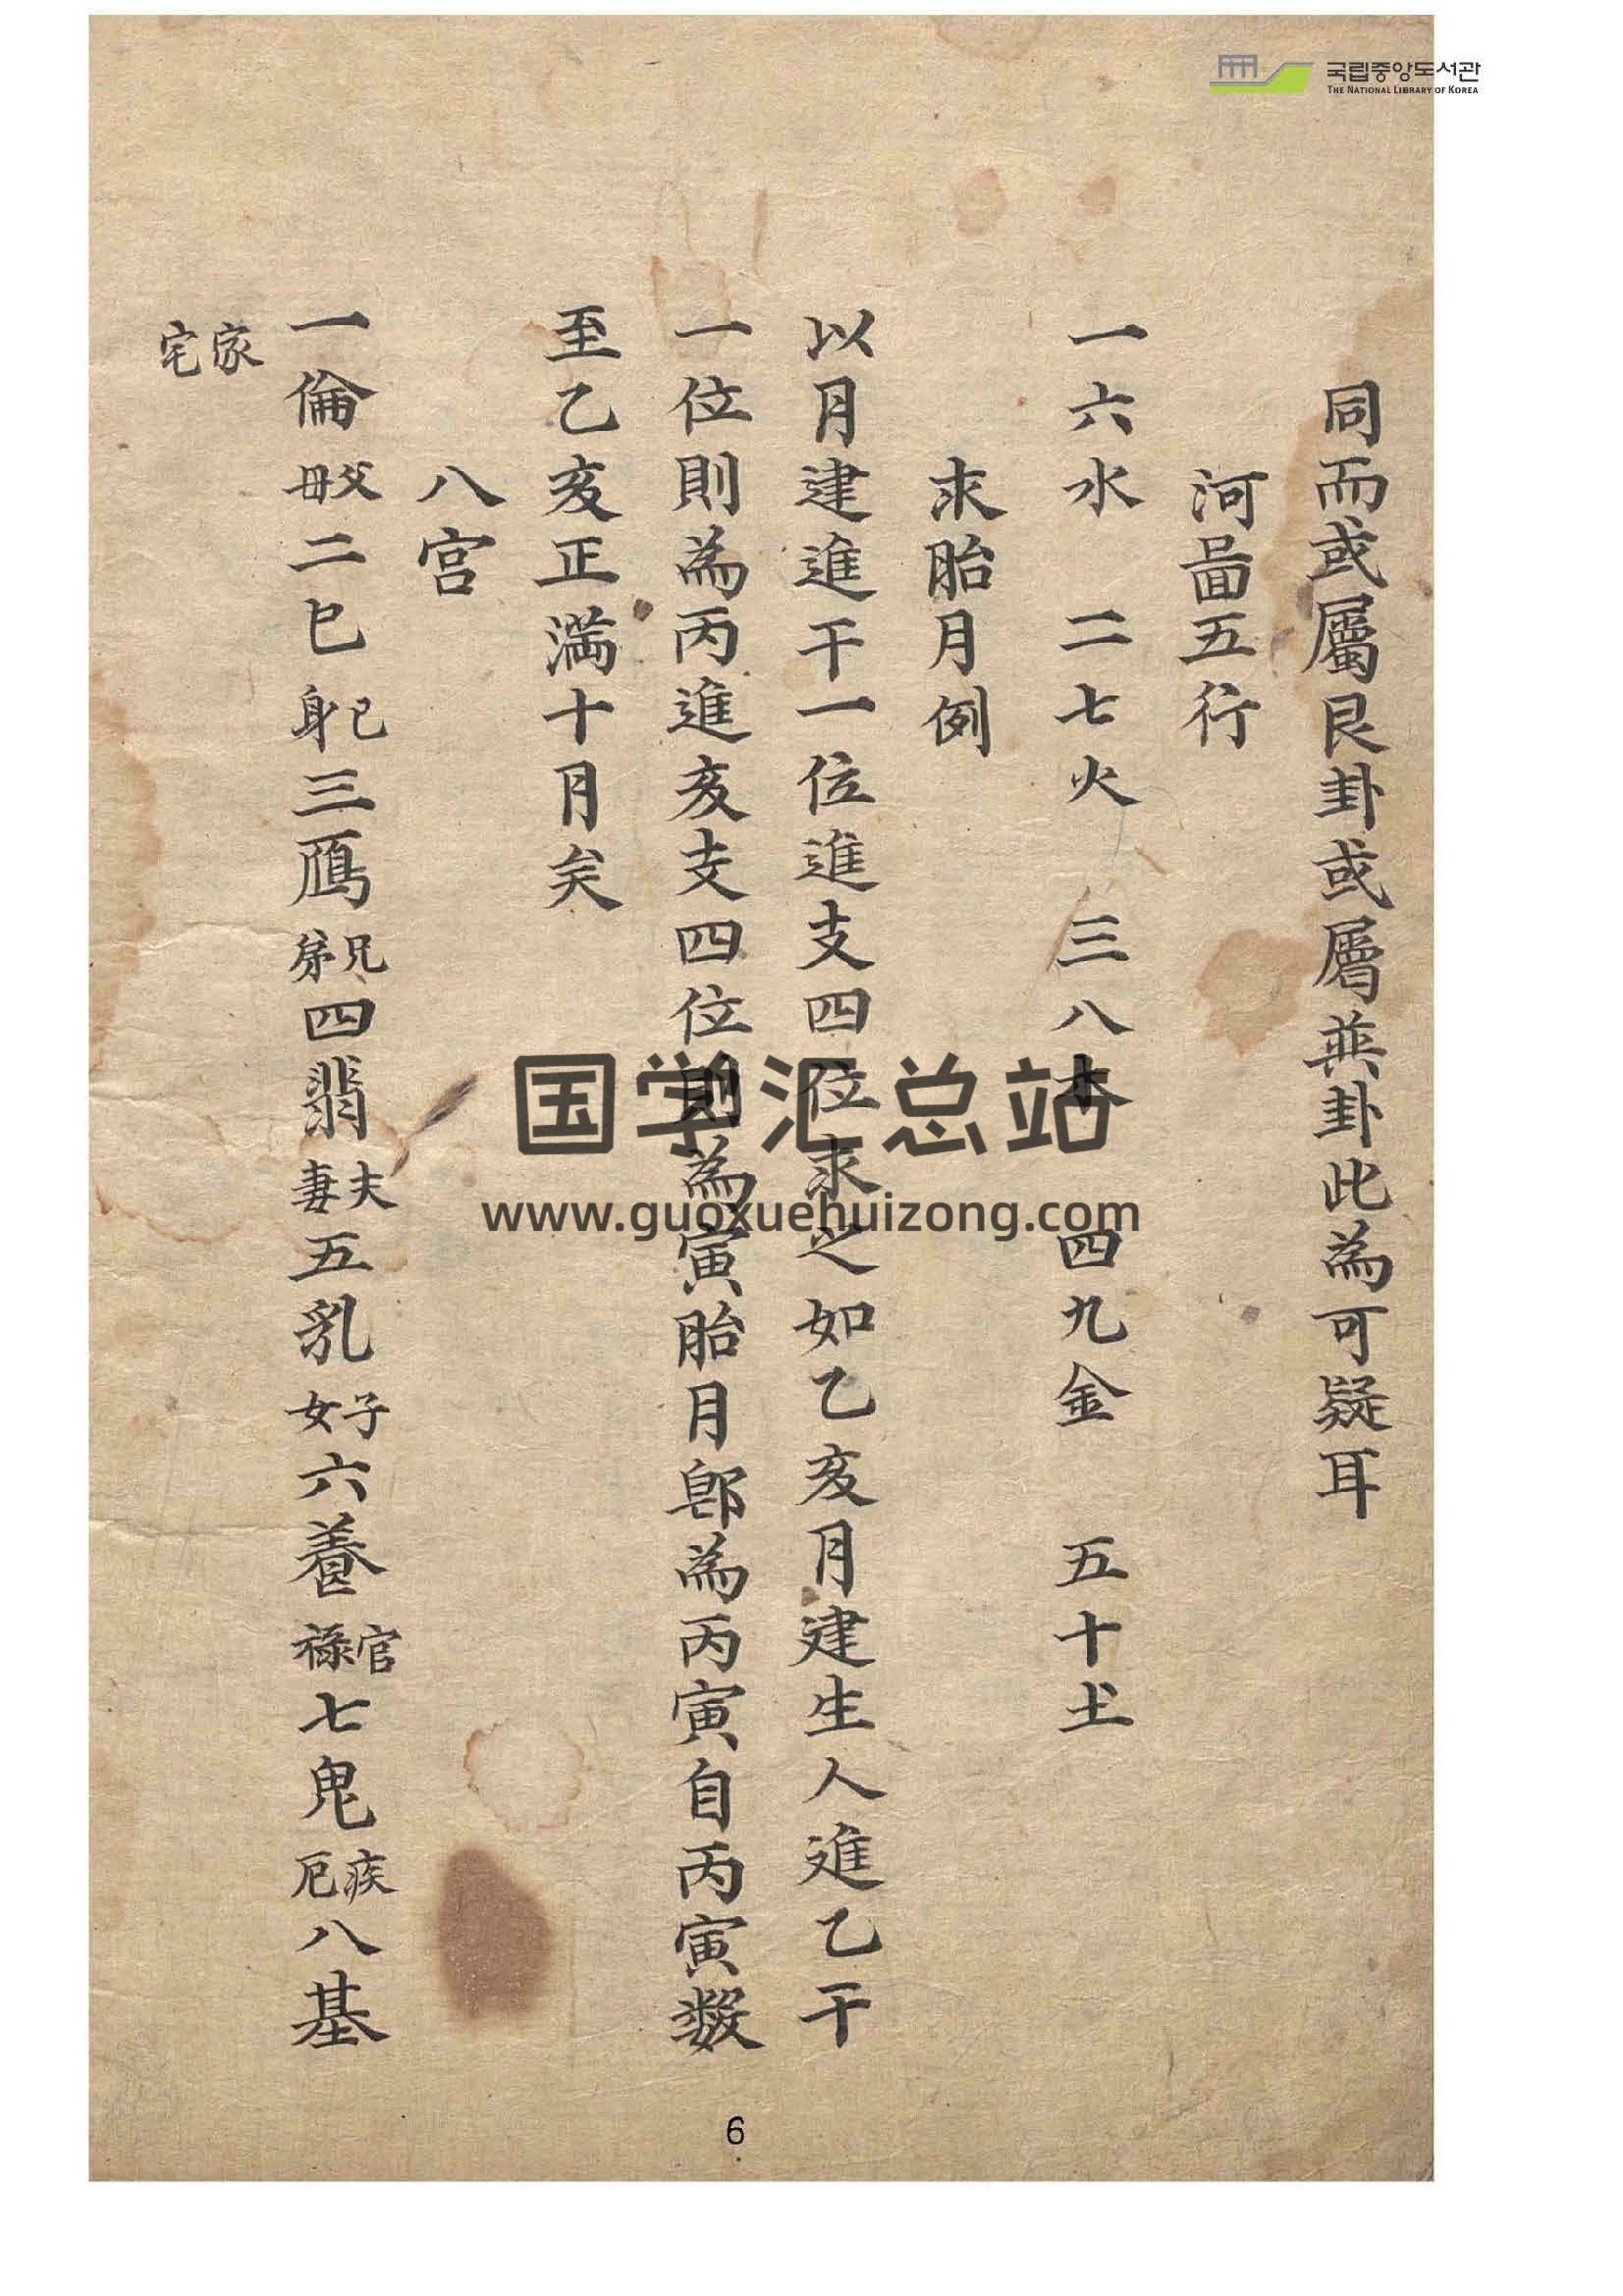 국립중앙도서관
THE NATIONAL LIBRARY OF KOREA
同而或屬艮卦或屬兼卦此為可疑耳
河啚五行
一六水 二七火 三八木 四九金 五十土
求胎月例
以月建進干一位進支四位求之如乙亥月建生人進乙干
一位則為丙進亥支四位則為寅胎月即為丙寅自丙寅數
至乙亥正滿十月矣
八宮
一倫父母二己己身三鴈兄弟四翡夫妻五乳子女六養官祿七鬼疾厄八基
家宅
国学汇总站
www.guoxuehuizong.com
6